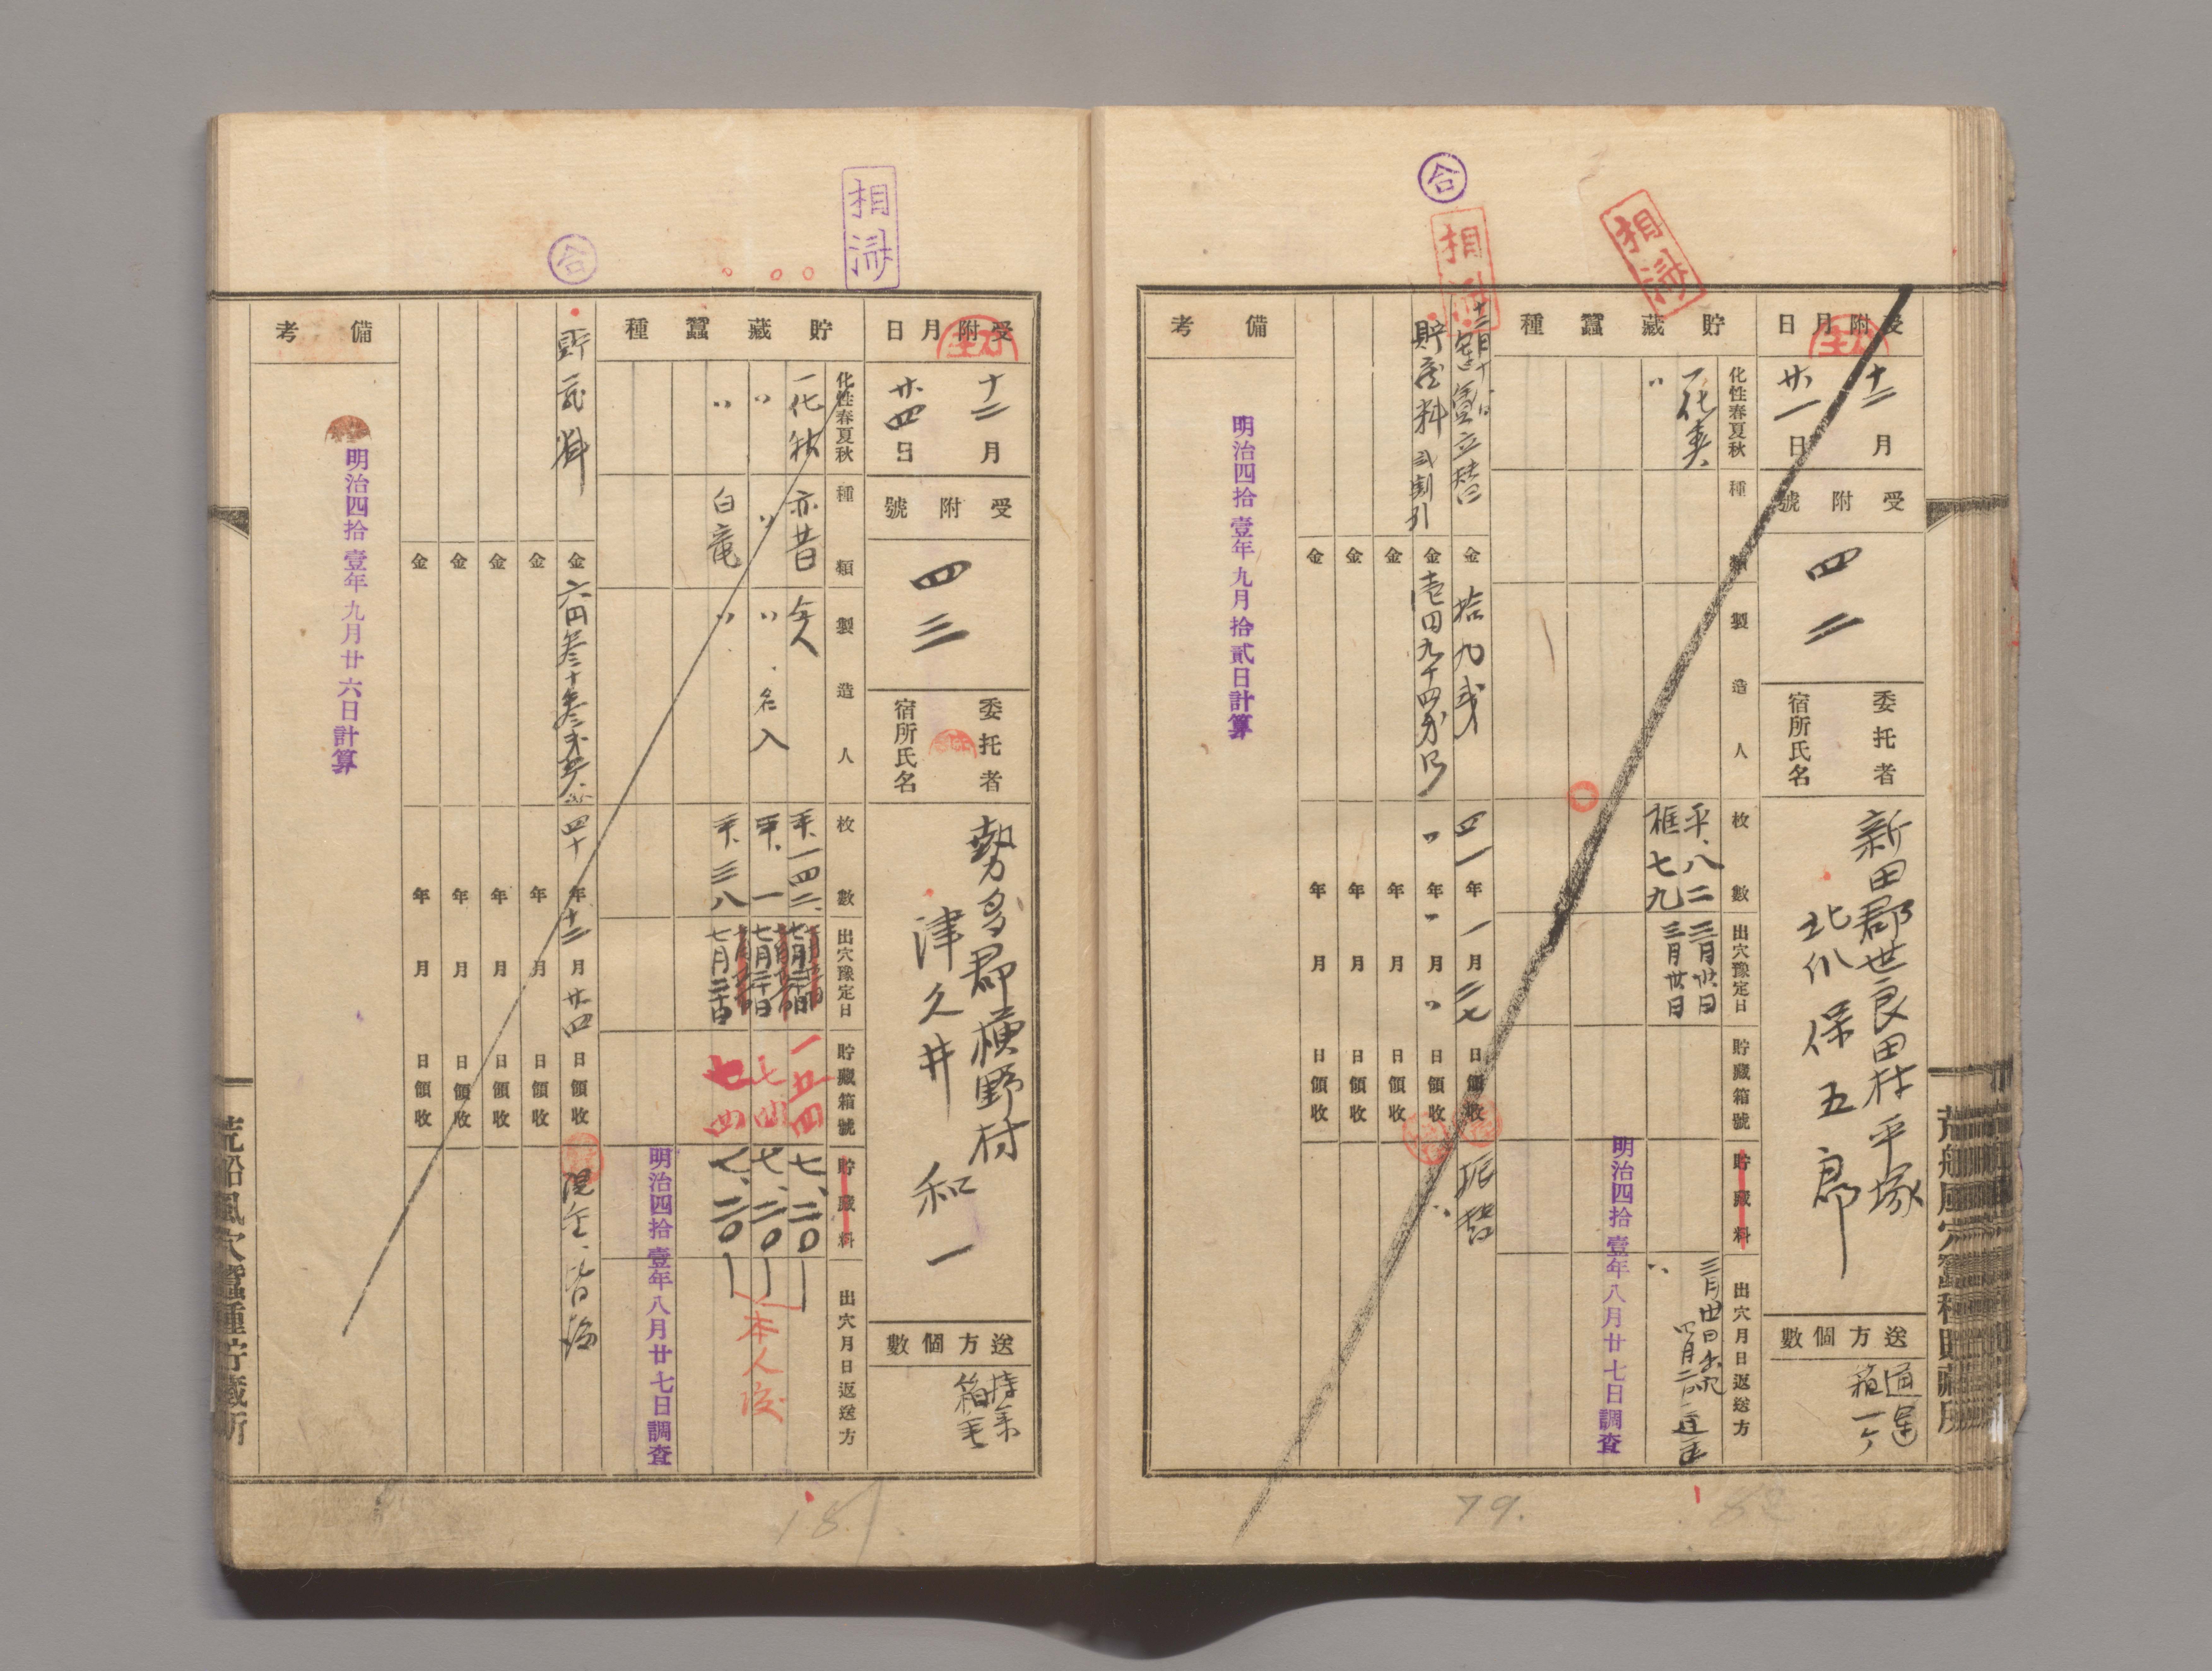 合
相済
相済
受附月日
十二月
廿一日
受附號
四二
委托者
宿所氏名
新田郡世良田村平塚
北爪保五郎
送方個數
通運
箱一ケ
貯藏蠶種
化性春夏秋
種類
製造人
枚數
出穴豫定日
貯藏箱號
貯藏料
出穴月日返送方
一化
平、八二
三月卅日
三月廿日出穴
〃
框七九
三月卅日
〃
四月二日
明治四拾壹年八月廿七日調査
金拾九戔
四一年一月二七日領收
振替
貯蔵料弐割引
金壱円九十四戔
〃年〃月〃日領收
〃
金 年 月 日領收
金 年 月 日領收
金 年 月 日領收
備考
明治四拾壹年九月拾貳日計算
荒船風穴蠶種貯藏所
79.
82
相済
合
受附月日
十二月
廿四日
受附號
四三
委托者
宿所氏名
勢多郡横野村
津久井和一
送方個數
持参
箱
貯藏蠶種
化性春夏秋
種類
製造人
枚數
出穴豫定日
貯藏箱號
貯藏料
出穴月日返送方
一化秋
赤昔
仝人
平、一四二、
一五四
七、二〇
〃
〃
〃、名入
平、一
七月二十日
七四
七、二〇
〃
白竜
〃
平、三八
七月二十日
七四
七、二〇
本人渡
明治四拾壹年八月廿七日調査
貯蔵料
金六円参十参戔
四十年十二月廿四日領收
現金、
金 年 月 日領收
金 年 月 日領收
金 年 月 日領收
金 年 月 日領收
備考
明治四拾壹年九月廿六日計算
荒船風穴蠶種貯藏所
181.